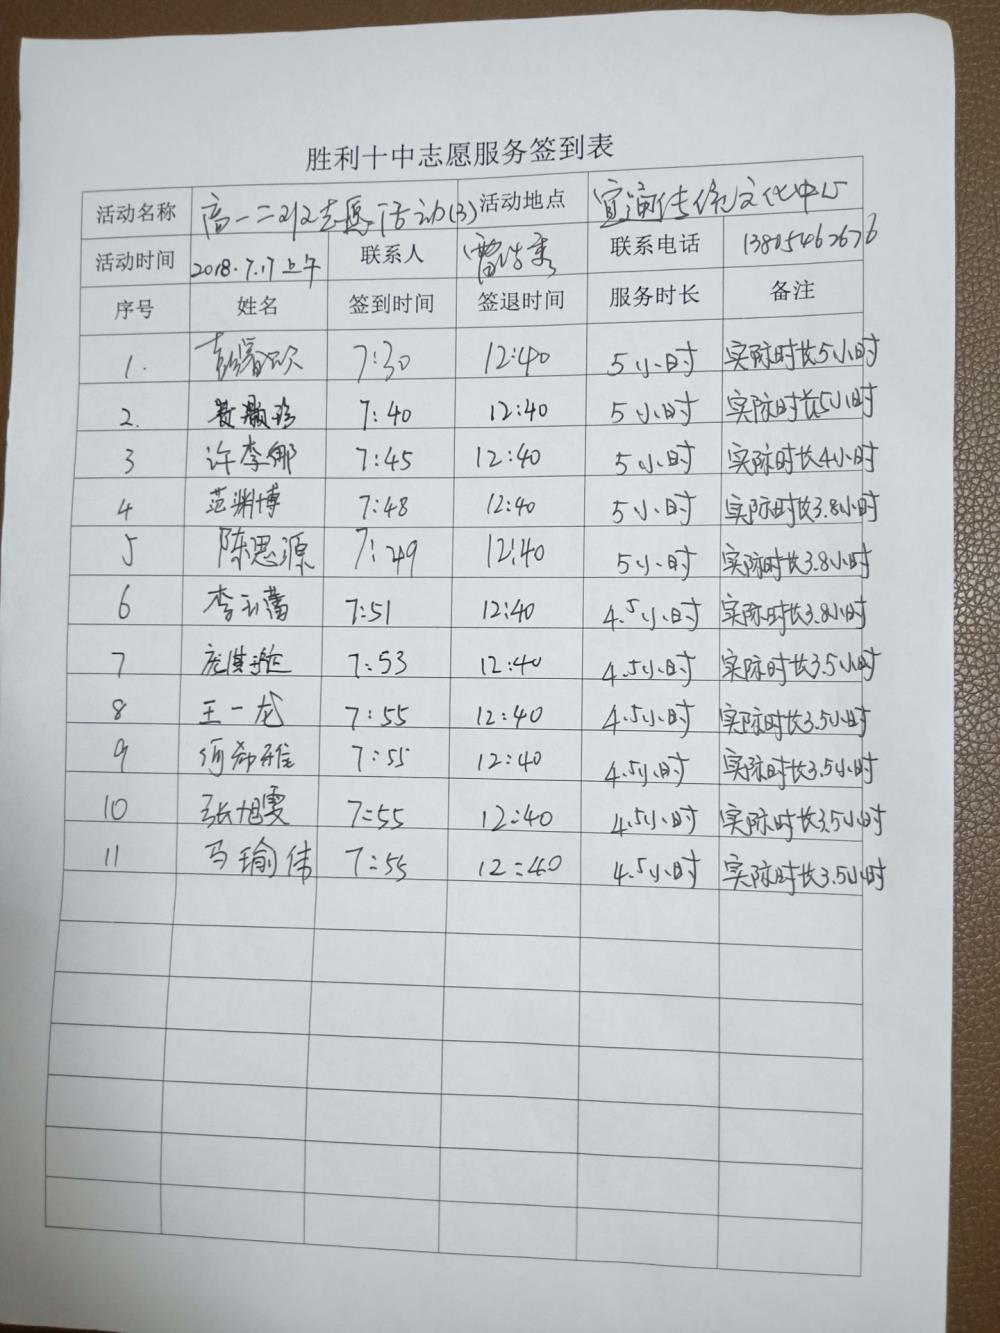 胜利十中志愿服务签到表
活动名称 高一二班志愿活动(3) 活动地点 宜润传统文化中心
活动时间 2018.7.17上午 联系人 雷 秀 联系电话 13805462676
序号 姓名 签到时间 签退时间 服务时长 备注
1. 7:30 12:40 5小时 实际时长5小时
2. 7:40 12:40 5小时 实际时长5小时
3 许李娜 7:45 12:40 5小时 实际时长4小时
4 范渊博 7:48 12:40 5小时 实际时长3.8小时
5 陈思源 7:49 12:40 5小时 实际时长3.8小时
6 李 7:51 12:40 4.5小时 实际时长3.8小时
7 7:53 12:40 4.5小时 实际时长3.5小时
8 王一龙 7:55 12:40 4.5小时 实际时长3.5小时
9 7:55 12:40 4.5小时 实际时长3.5小时
10 张旭雯 7:55 12:40 4.5小时 实际时长3.5小时
11 马瑜伟 7:55 12:40 4.5小时 实际时长3.5小时